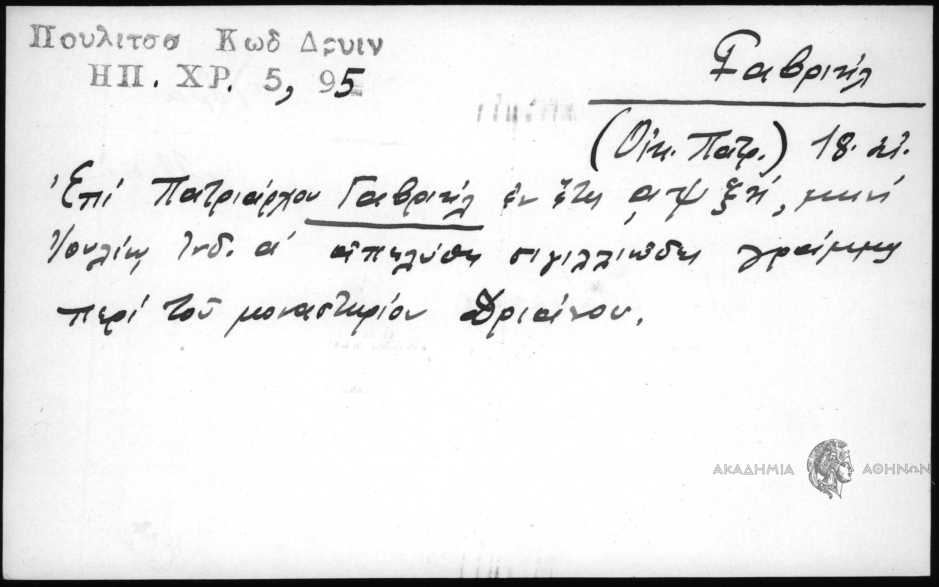 Πουλιτσσ Κωδ Δρυιν
ΗΠ. ΧΡ. 5, 95
Γαβριήλ
(Οἰκ. Πατρ.) 18. αἰ.
Ἐπί Πατριάρχου Γαβριήλ ἐν ἔτει ͵αψξή, μηνί
Ἰουλίῳ, Ἰνδ. α' ἀπελύθη σιγιλλιῶδες γράμμα
περί τοῦ μοναστηρίου Δριαίνου.
ΑΚΑΔΗΜΙΑ ΑΘΗΝΩΝ